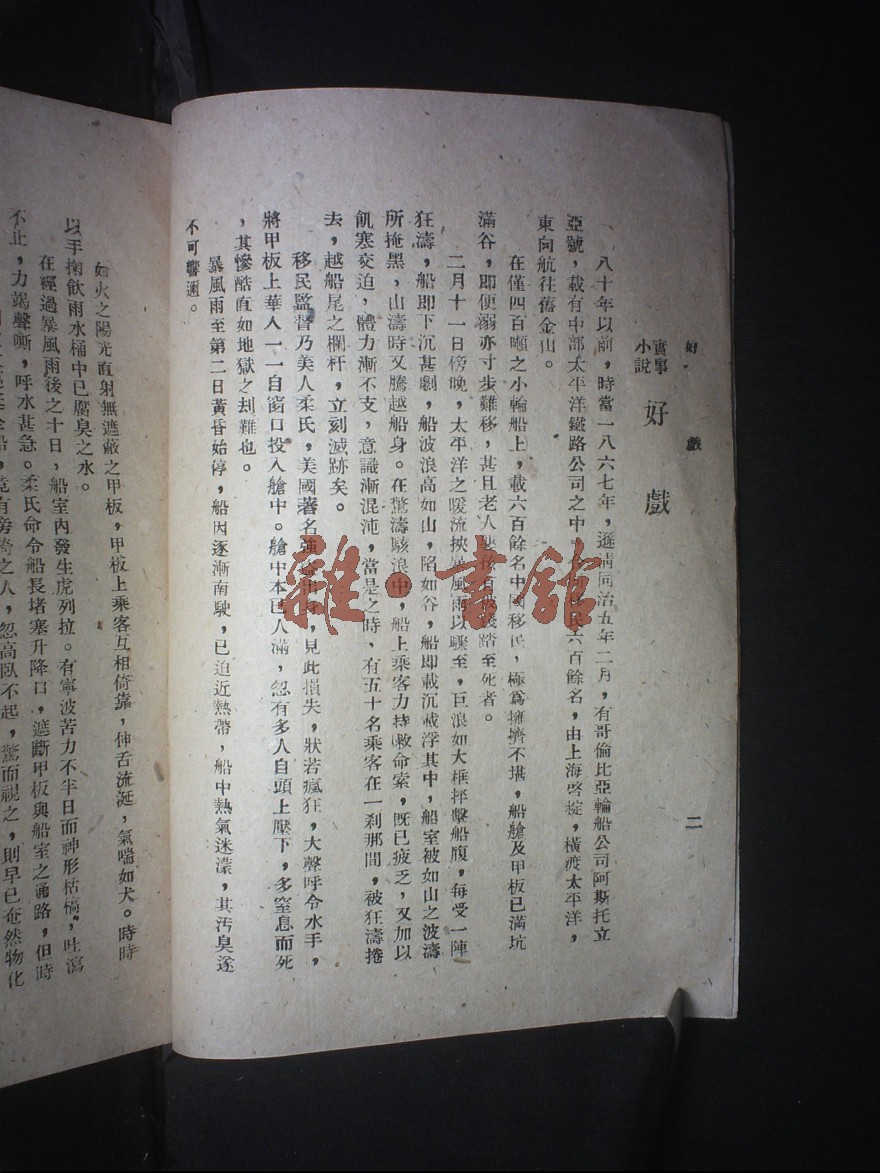 好戲
二
實事
小說
好戲
八十年以前，時當一八六七年，遜清同治五年二月，有哥倫比亞輪船公司阿斯托立
亞號，載有中部太平洋鐵路公司之中國移民六百餘名，由上海啓椗，橫渡太平洋，
東向航往舊金山。
在僅四百噸之小輪船上，載六百餘名中國移民，極爲擁擠不堪，船艙及甲板已滿坑
滿谷，即便溺亦寸步難移，甚且老人有被踐踏至死者。
二月十一日傍晚，太平洋之暖流挾暴風雨以驟至，巨浪如大棰抨擊船腹，每受一陣
狂濤，船即下沉甚劇，船波浪高如山，陷如谷，船即載沉載浮其中，船室被如山之波濤
所掩黑，山濤時又騰越船身。在驚濤駭浪中，船上乘客力持救命索，旣已疲乏，又加以
飢寒交迫，體力漸不支，意識漸混沌，當是之時，有五十名乘客在一刹那間，被狂濤捲
去，越船尾之欄杆，立刻滅跡矣。
移民監督乃美人柔氏，美國著名強，見此損失，狀若瘋狂，大聲呼令水手，
將甲板上華人一一自窗口投入艙中。艙中本已人滿，忽有多人自頭上壓下，多窒息而死
，其慘酷直如地獄之刼難也。
暴風雨至第二日黃昏始停，船因逐漸南駛，已迫近熱帶，船中熱氣迷濛，其汚臭遂
不可嚮邇。
如火之陽光直射無遮蔽之甲板，甲板上乘客互相倚靠，伸舌流涎，氣喘如犬。時時
以手掬飲雨水桶中已腐臭之水。
在經過暴風雨後之十日，船室內發生虎列拉。有寧波苦力不半日而神形枯槁，吐瀉
不止，力竭聲嘶，呼水甚急。柔氏命令船長堵塞升降口，遮斷甲板與船室之通路，但時
船，竟有傍倚之人，忽高臥不起，驚而視之，則早已奄然物化
雜·書館